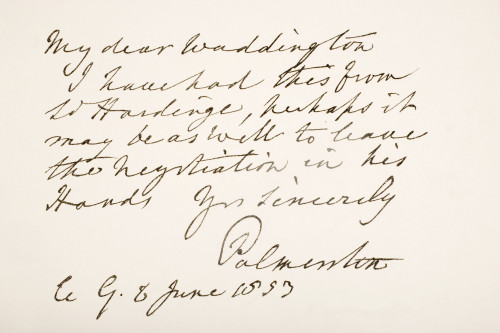 My dear Waddington
I have had this from
Ld Hardinge, perhaps it
may be as well to leave
the Negotiation in his
Hands Yrs Sincerely
Palmerston
G. 8 June 1853